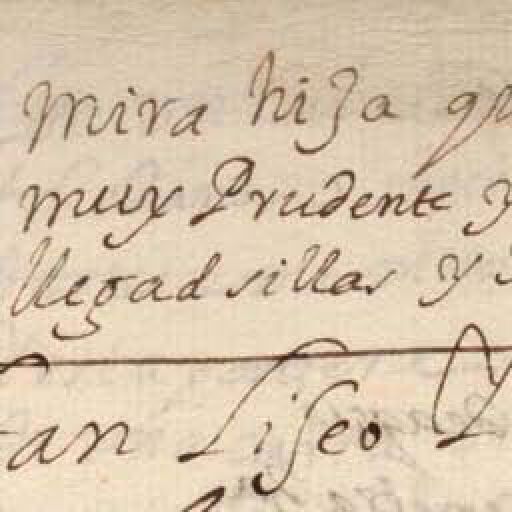 mira hija qu
muy Prudente y
llegad sillas y
an Liseo Y